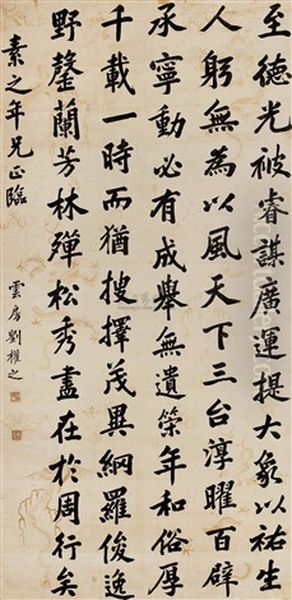 至德光被睿謀廣運提大象以祐生
人躬無為以風天下三台淳曜百辟
承寧動必有成舉無遺策年和俗厚
千載一時而猶搜擇茂異網羅俊逸
野罄蘭芳林殫松秀盡在於周行矣
素之年兄正臨
雲房劉權之